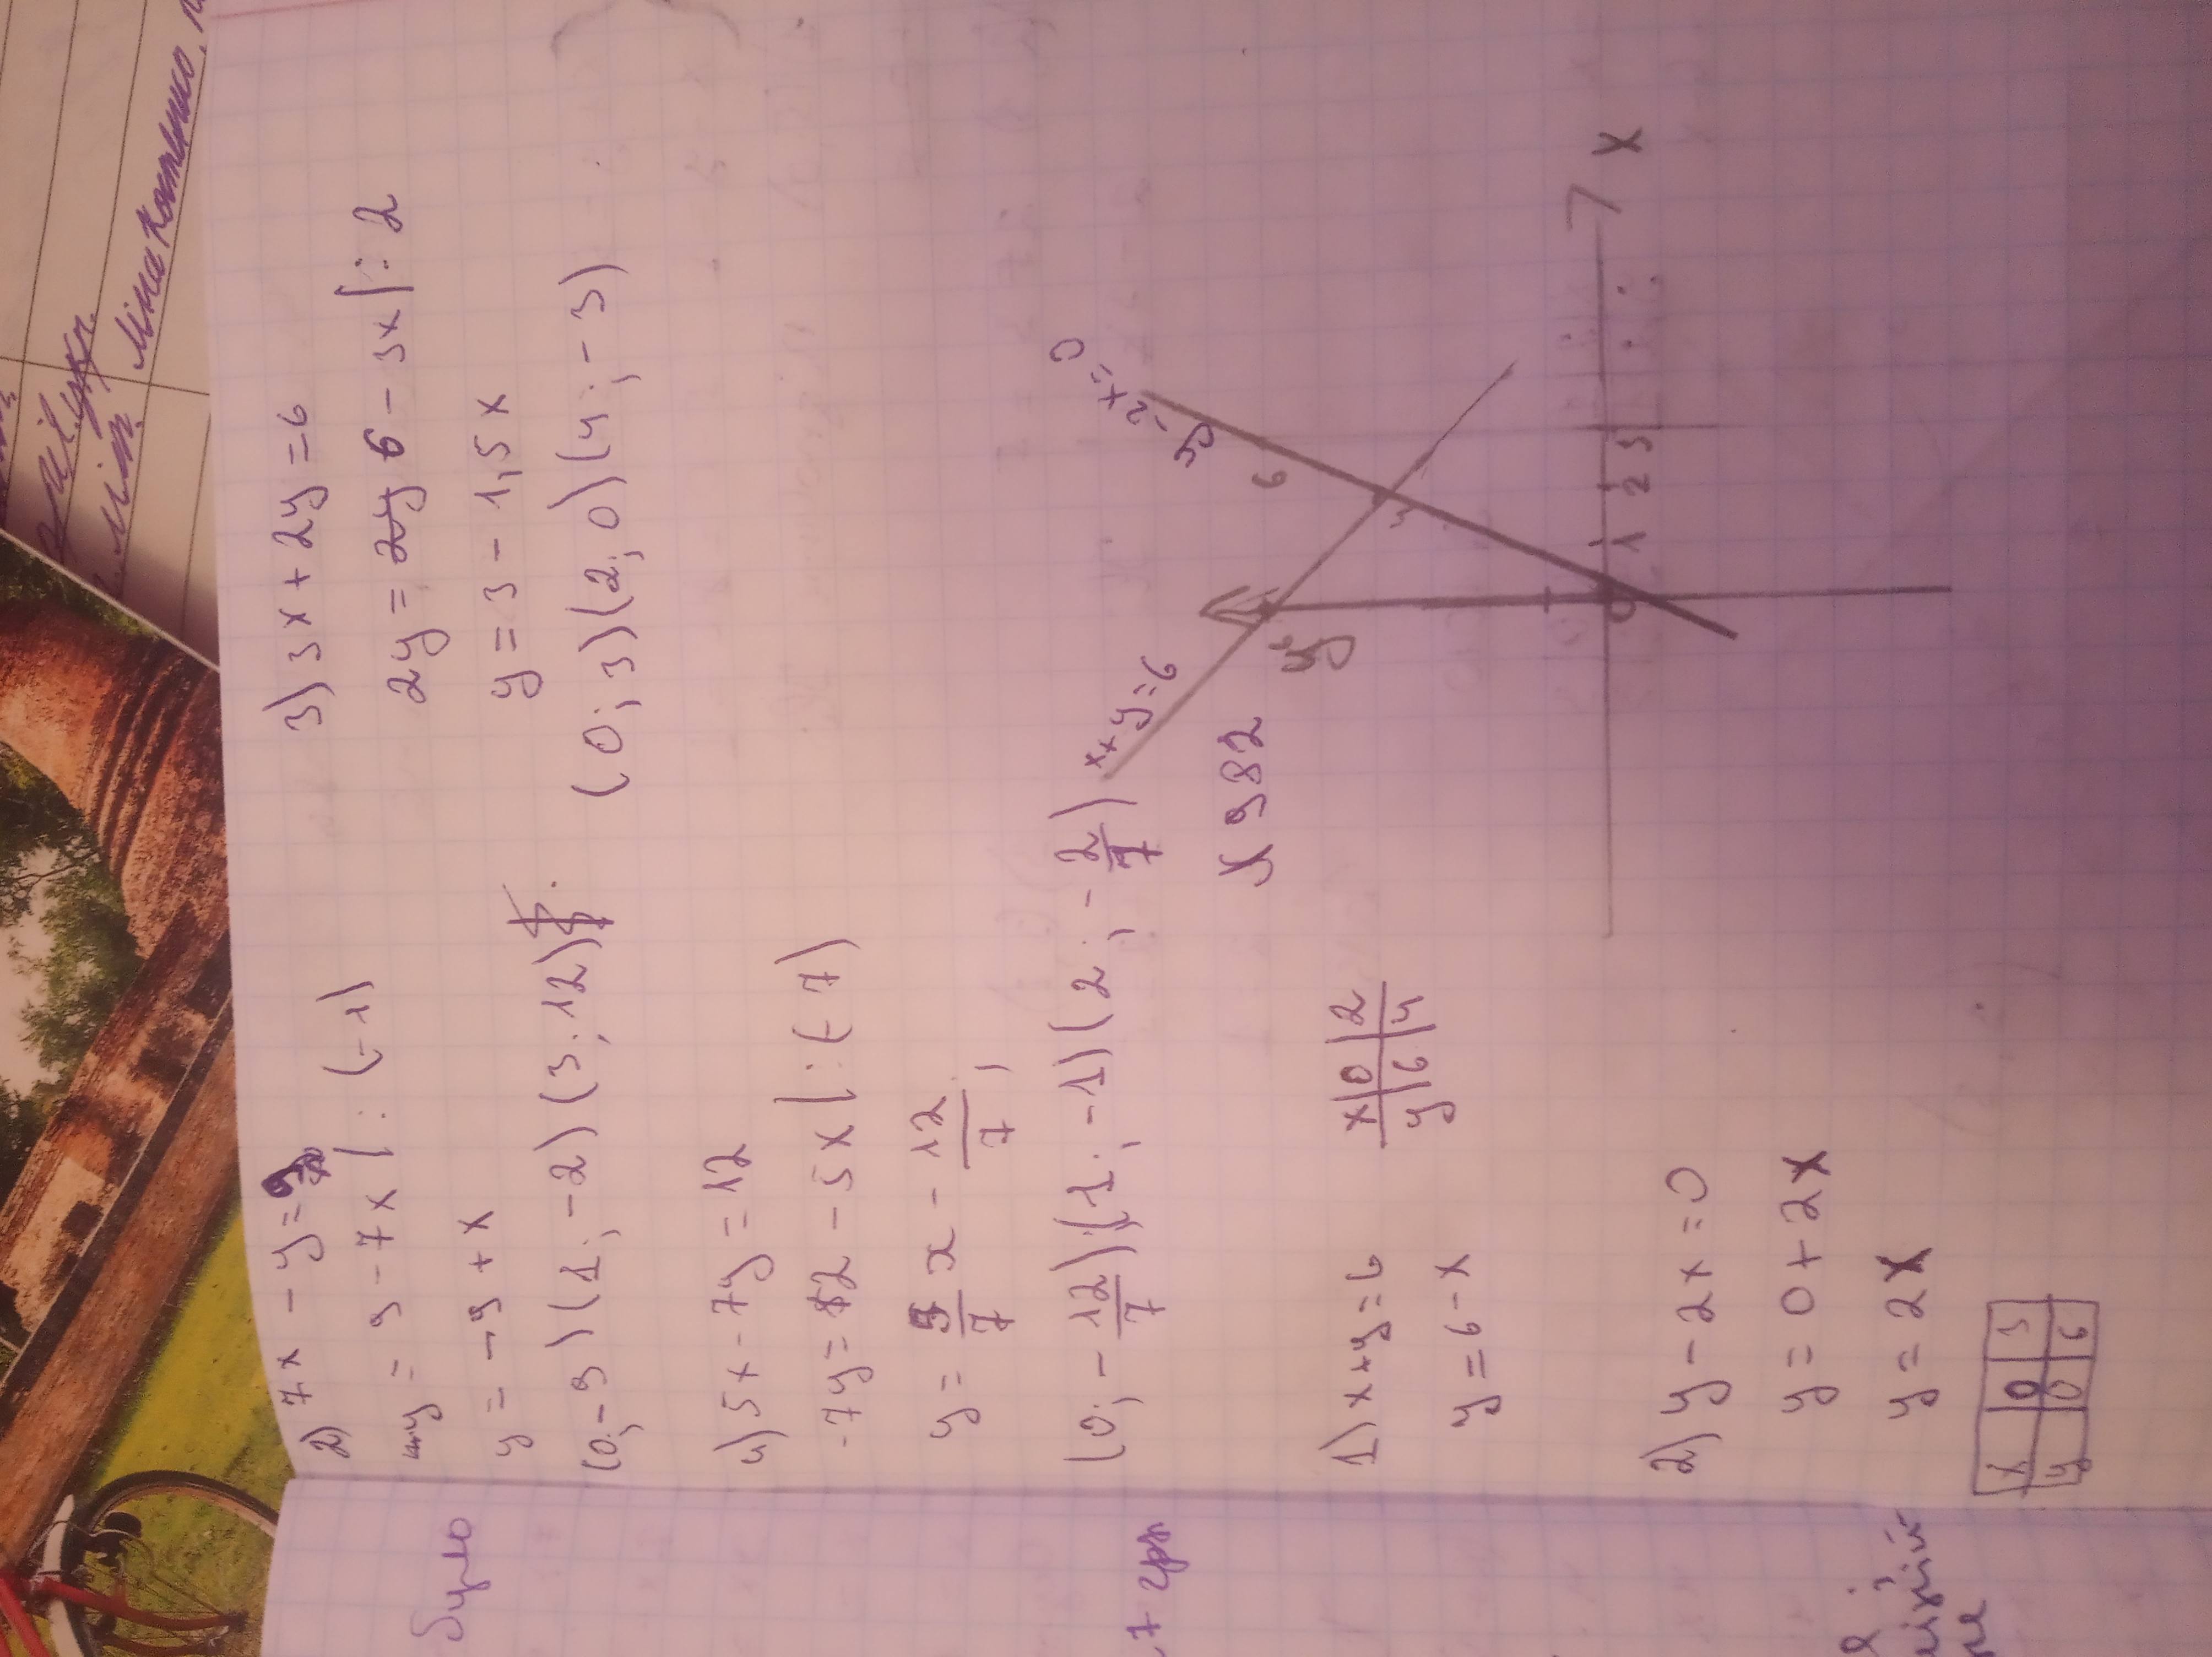 Міна Костенко,
2) 7x - y = 9
y = 9 - 7x | : (-1)
y = -9 + x
(0; -9) (1; -2) (3; 12)
3) 3x + 2y = 6
2y = 6 - 3x | : 2
y = 3 - 1,5x
(0; 3) (2; 0) (4; -3)
4) 5x - 7y = 12
-7y = 12 - 5x | : (-7)
y = 5/7 x - 12/7;
(0; -12/7) (1; -1) (2; -2/7)
№ 982
1) x + y = 6
y = 6 - x
x | 0 | 2
y | 6 | 4
2) y - 2x = 0
y = 0 + 2x
y = 2x
x | 0 | 3
y | 0 | 6
x + y = 6
y - 2x = 0
y
6
6
4
0 1 2 3
x
було